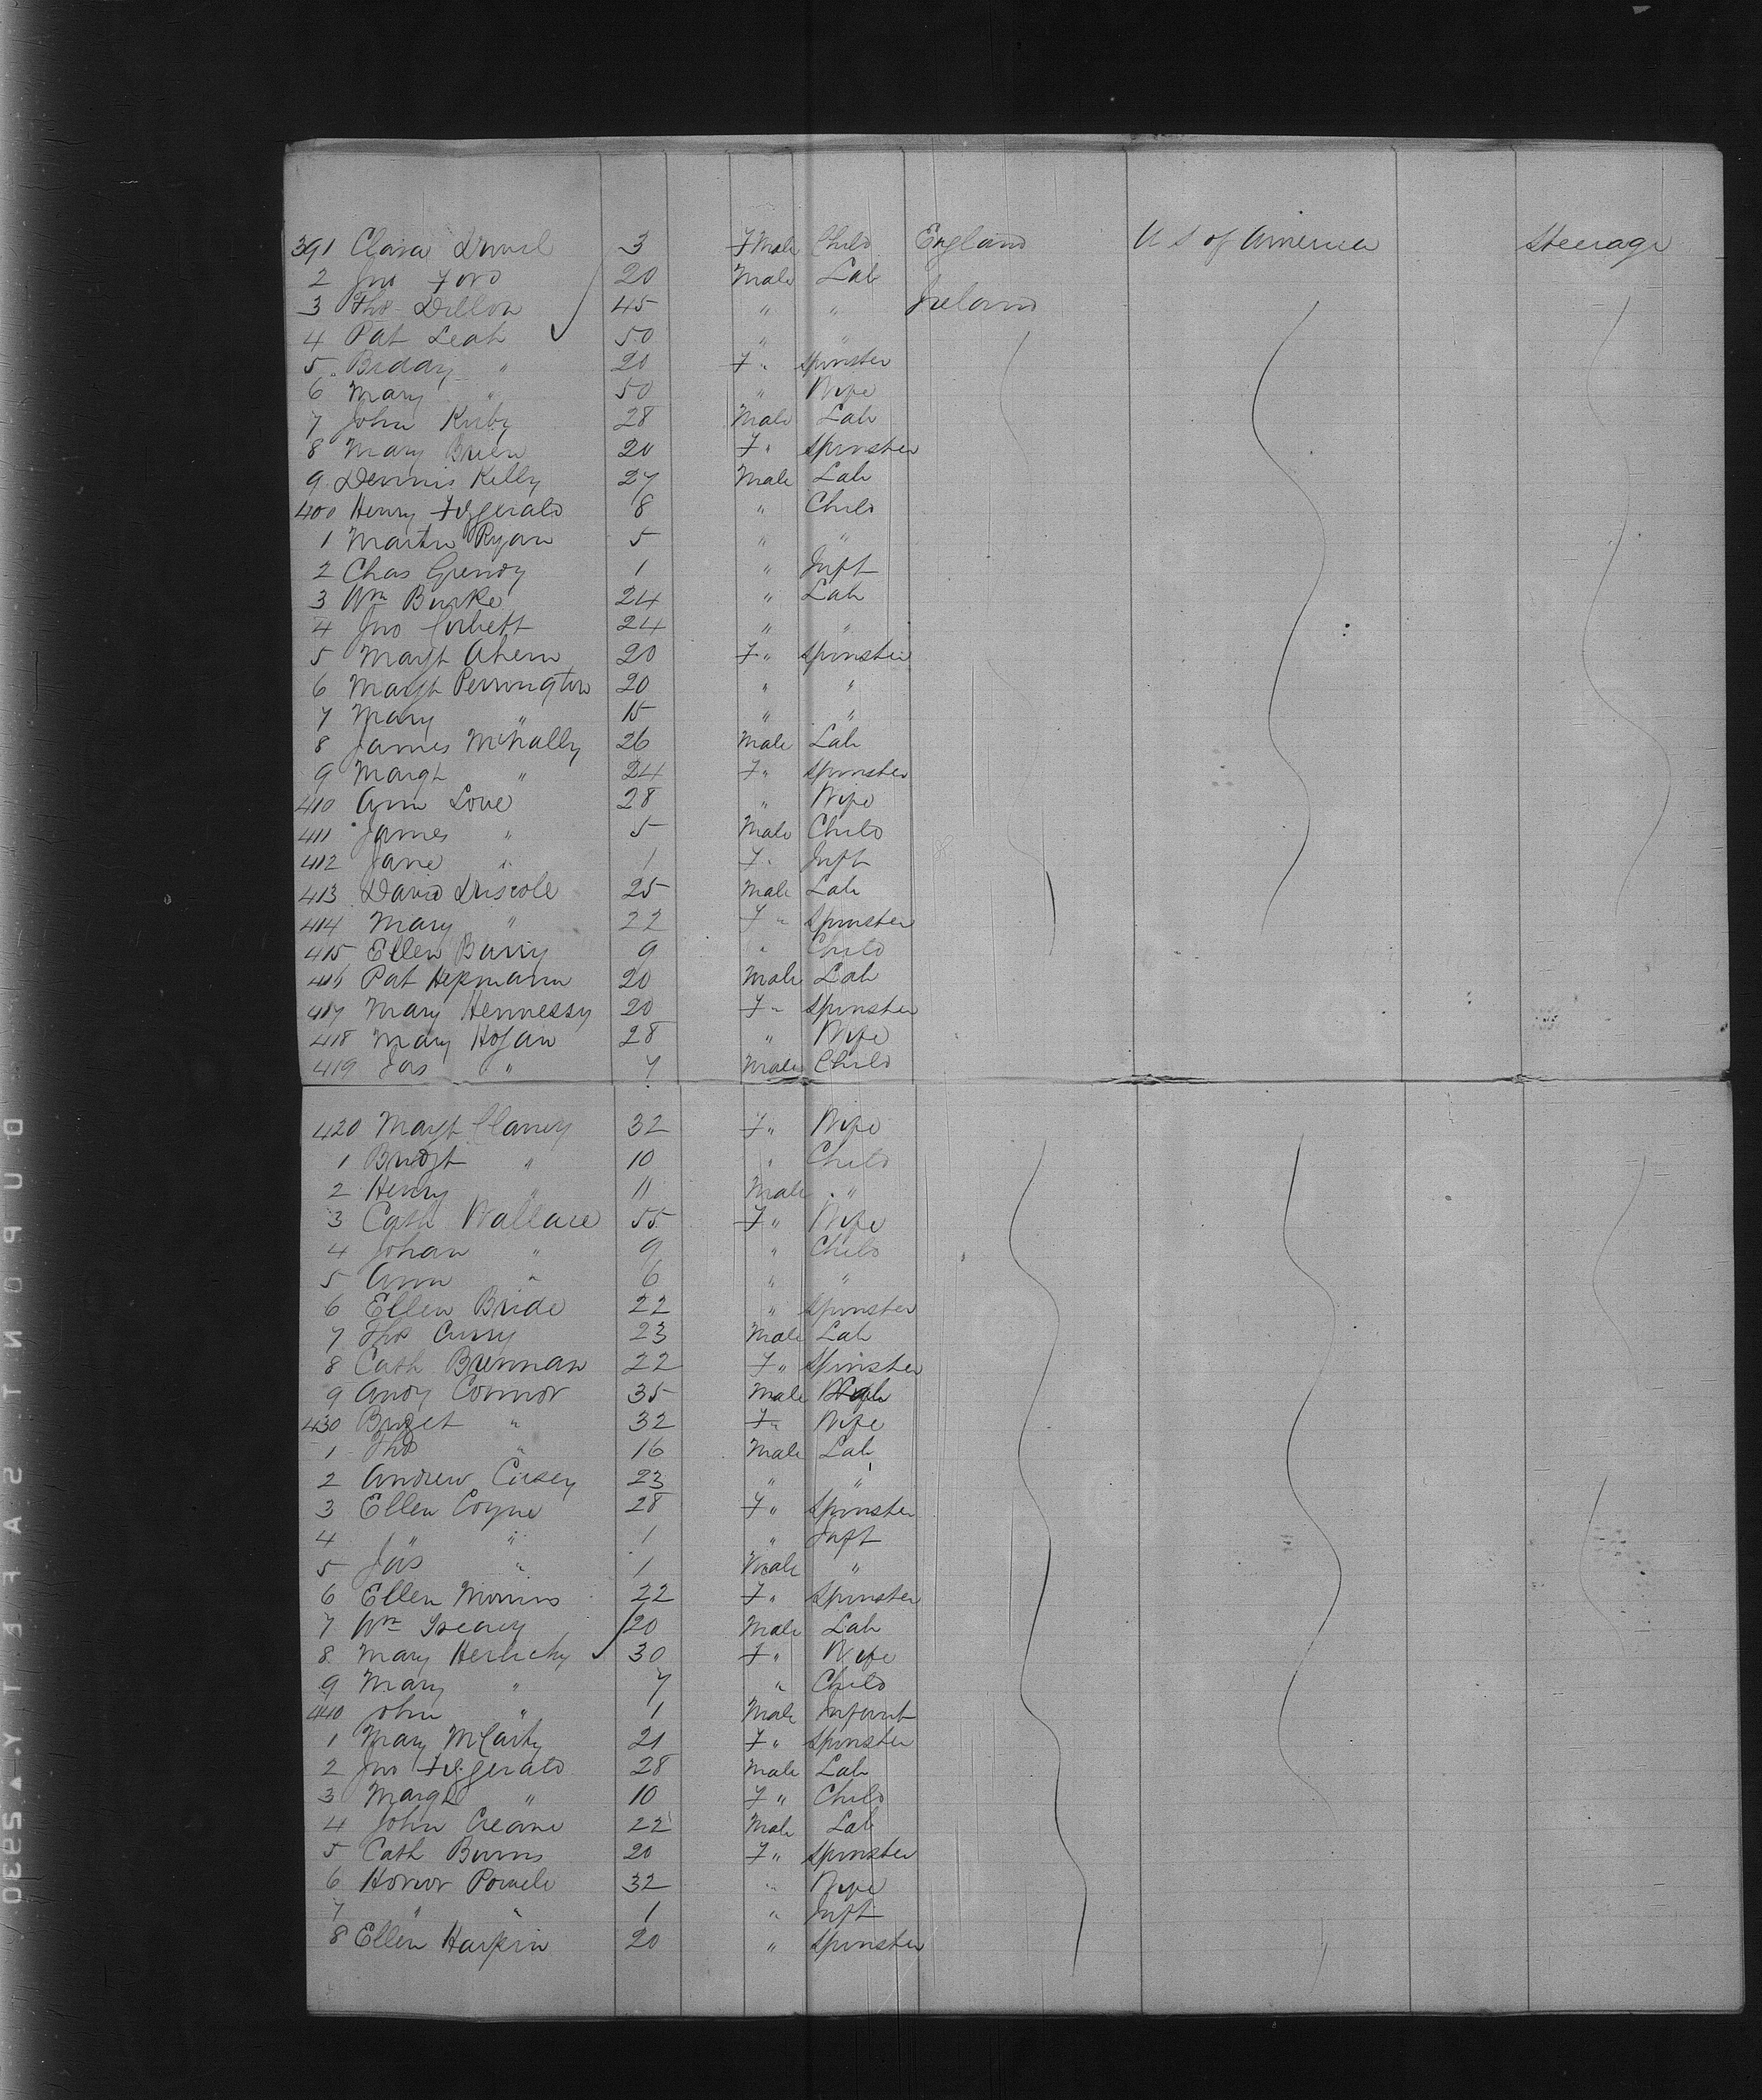 391 Clara 3 FMale Child England U S of America Steerage
2 Jno Ford 20 Male Lab
3 Thos Dillon 45 " " Ireland
4 Pat Leah 50 " "
5 Bidday " 20 F " Spinster
6 Mary " 50 " Wife
7 John Kirby 28 Male Lab
8 Mary Brien 20 F " Spinster
9 Dennis Kelly 27 Male Lab
400 Henry Fitzgerald 8 " Child
1 Martin Ryan 5 " "
2 Chas 1 " Inft
3 Wm Burke 24 " Lab
4 Jno Corbett 24 " "
5 Margt Ahern 20 F " Spinster
6 Margt Pennington 20 " "
7 Mary " 15 " "
8 James McNally 26 Male Lab
9 Margt " 24 F " Spinster
410 Ann Love 28 " Wife
411 James " 5 Male Child
412 Jane " 1 F " Inft
413 David Driscole 25 Male Lab
414 Mary " 22 F " Spinster
415 Ellen Barry 9 " Child
416 Pat 20 Male Lab
417 Mary Hennessy 20 F " Spinster
418 Mary Hogan 28 " Wife
419 Jas " 7 Male Child
420 Margt Clancy 32 F " Wife
1 Bridgt " 10 " Child
2 Henry " 11 Male "
3 Cath Wallace 55 F " Wife
4 Johan " 9 " Child
5 Ann " 6 " "
6 Ellen Bride 22 " Spinster
7 Thos Curry 23 Male Lab
8 Cath Brennan 22 F " Spinster
9 Andy Connor 35 Male Lab
430 Bridget " 32 F " Wife
1 Thos " 16 Male Lab
2 Andrew 23 " "
3 Ellen Coyne 28 F " Spinster
4 " " 1 " Inft
5 Jas " 1 Male "
6 Ellen Morris 22 F " Spinster
7 Wm 20 Male Lab
8 Mary Herlichy 30 F " Wife
9 Mary " 7 " Child
440 John " 1 Male Infant
1 Mary McCarty 21 F " Spinster
2 Jno Fitzgerald 28 Male Lab
3 Margt " 10 F " Child
4 John Creane 22 Male Lab
5 Cath Burns 20 F " Spinster
6 Honor Powele 32 " Wife
7 " " 1 " Inft
8 Ellen Harpin 20 " Spinster